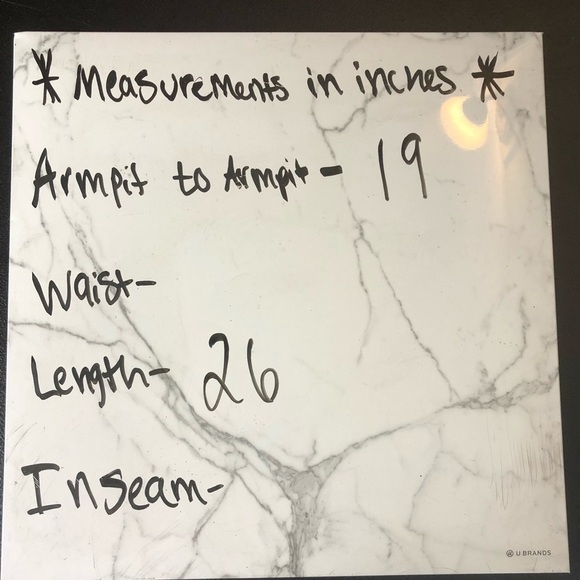 * Measurements in inches *
Armpit to Armpit - 19
Waist-
Length- 26
Inseam-
U BRANDS